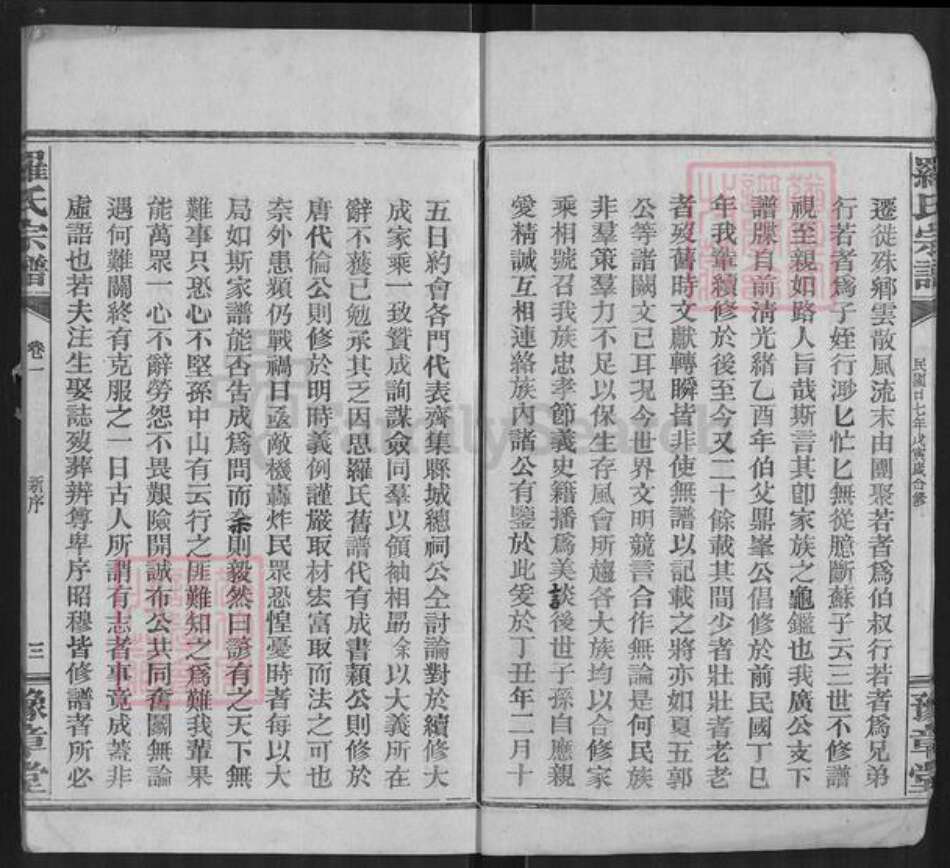 羅氏宗譜
民國廿七年戊寅歲合修
豫章堂
遷徙殊鄉雲散風流末由團聚若者為伯叔行若者為兄弟
行若者為子姪行渺匕忙匕無從臆斷蘇子云三世不修譜
視至親如路人旨哉斯言其即家族之龜鑑也我廣公支下
譜牒自前清光緒乙酉年伯父鼎峯公倡修於前民國丁巳
年我輩續修於後至今又二十餘載其間少者壯壯者老老
者歿舊時文獻轉瞬皆非使無譜以記載之將亦如夏五郭
公等諸闕文已耳況今世界文明競言合作無論是何民族
非羣策羣力不足以保生存風會所趨各大族均以合修家
乘相號召我族忠孝節義史籍播為美談後世子孫自應親
愛精誠互相連絡族內諸公有鑒於此爰於丁丑年二月十
五日約會各門代表齊集縣城總祠公仝討論對於續修大
成家乘一致贊成詢謀僉同羣以領袖相勗余以大義所在
辭不獲已勉承其乏因思羅氏舊譜代有成書穎公則修於
唐代倫公則修於明時義例謹嚴取材宏富取而法之可也
奈外患頻仍戰禍日亟敵機轟炸民眾恐惶憂時者每以大
局如斯家譜能否告成為問而余則毅然曰諺有之天下無
難事只恐心不堅孫中山有云行之匪難知之為難我輩果
能萬眾一心不辭勞怨不畏艱險開誠布公共同奮鬭無論
遇何難關終有克服之一日古人所謂有志者事竟成蓋非
虛語也若夫注生娶誌歿葬辨尊卑序昭穆皆修譜者所必
羅氏宗譜
卷一
新序
三
豫章堂
FamilySearch